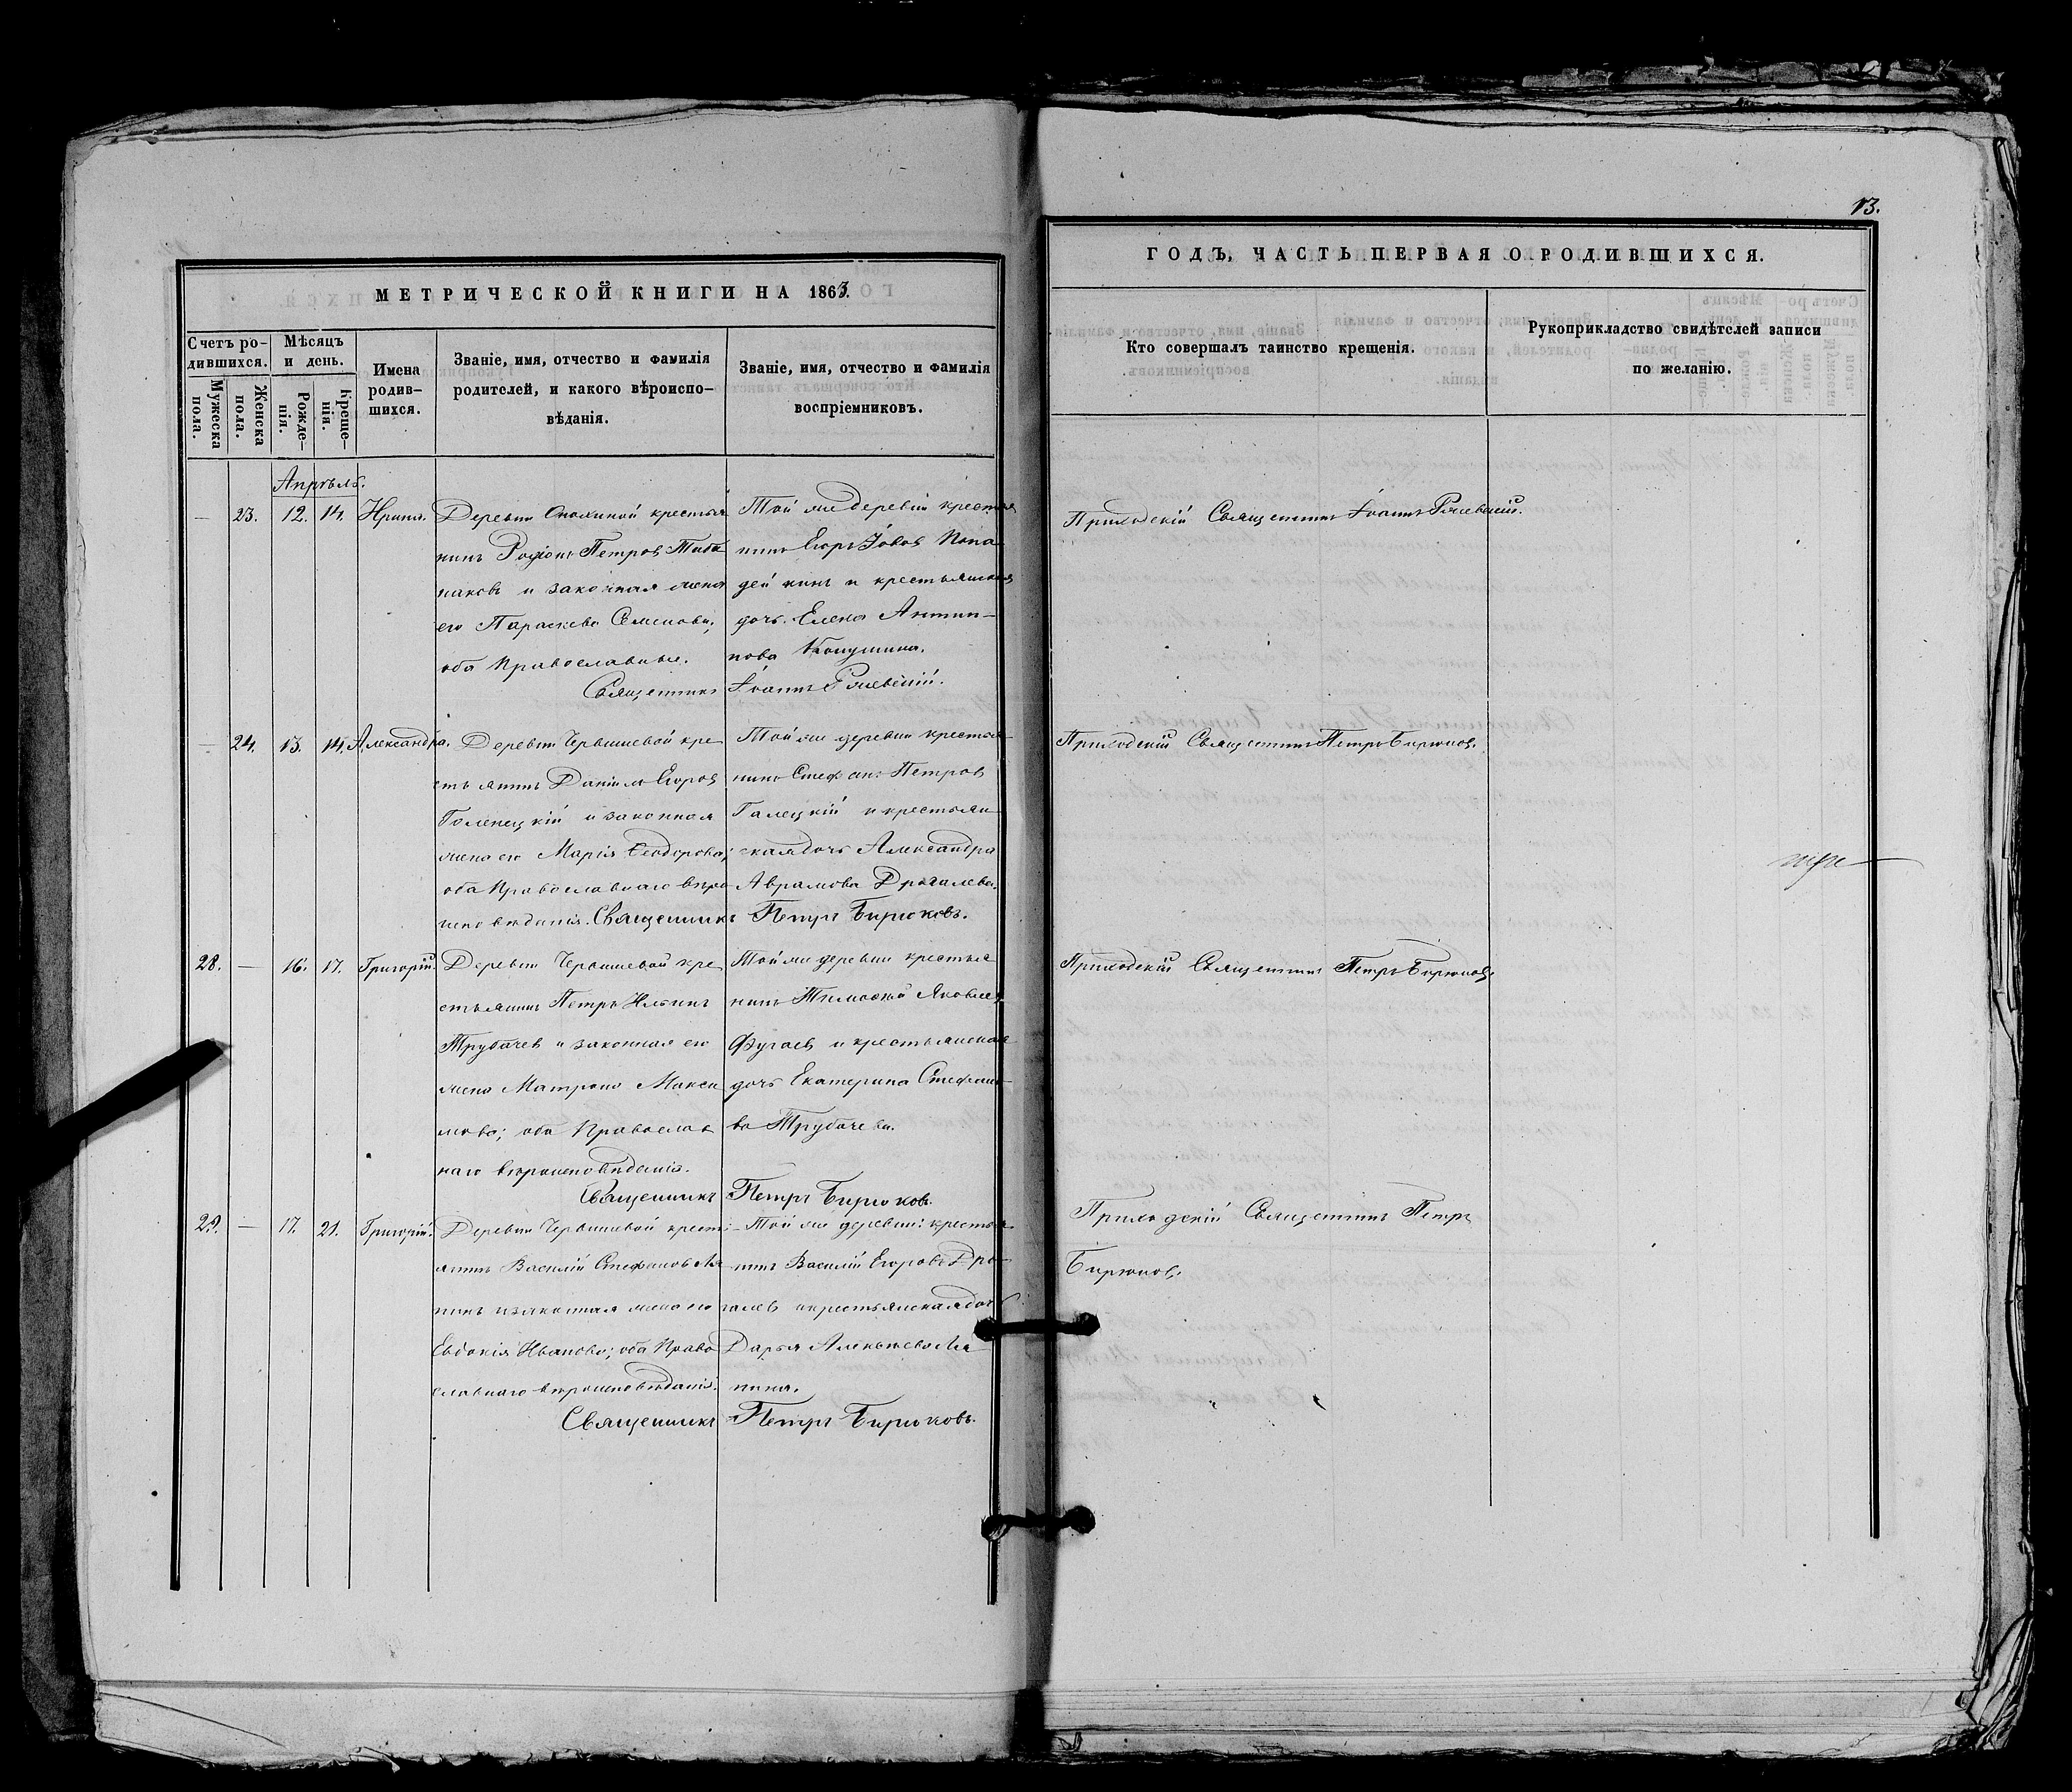 13.
МЕТРИЧЕСКОЙ КНИГИ НА 1863.
Счетъ ро-
дившихся.
Мужеска
пола.
Женска
пола.
Мѣсяцъ
и день.
Рожде-
нія.
Креще-
нія.
Имена
родив-
шихся.
Званіе, имя, отчество и фамилія
родителей, и какого вѣроиспо-
вѣданія.
Званіе, имя, отчество и фамилія
воспріемниковъ.
ГОДЪ, ЧАСТЬ ПЕРВАЯ О РОДИВШИХСЯ.
Кто совершалъ таинство крещенія.
Рукоприкладство свидѣтелей записи
по желанію.
Апрѣль.
— 23. 12. 14. Ирина.
Деревни крестья
нинъ Родіонъ Петровъ
и законная жена
его Параскева Семенова;
оба Православные.
Той же деревни крестья
нинъ Егоръ Іововъ Попа
дейкинъ и крестьянская
дочь Елена Антип-
пова
Священникъ Іоаннъ
Приходскій Священникъ Іоаннъ
— 24. 13. 14. Александра.
Деревни Червишевой кре
стьянинъ Даніилъ Егоровъ
Голенецкій и законная
жена его Марія Ѳеодорова;
оба Православнаго вѣро
исповѣданія. Священникъ Петръ Бирюковъ.
Той же деревни крестья-
нинъ Стефанъ Петровъ
Галецкій и крестьян
ская дочь Александра
Аврамова Дрыгалева.
Приходскій Священникъ Петръ Бирюковъ.
28. — 16. 17. Григорій.
Деревни Червишевой кре
стьянинъ Петръ Ильинъ
Трубачев и законная его
жена Матрона Макси
мова; оба Православ
наго вѣроисповѣданія.
Той же деревни крестья
нинъ Тимофей Яковлев
Фугаев и крестьянская
дочь Екатерина Стефано-
ва Трубачева.
Священникъ Петръ Бирюковъ.
Приходскій Священникъ Петръ Бирюковъ.
29. — 17. 21. Григорій.
Деревни Червишевой кресть-
янинъ Василій Стефановъ Ля
пинъ и законная жена его
Евдокія Иванова; оба Право
славнаго вѣроисповѣданія.
Той же деревни крестья
нинъ Василій Егоровъ Дры-
галев и крестьянская дочь
Дарья Алексѣева Ля
пина.
Священникъ Петръ Бирюковъ.
Приходскій Священникъ Петръ
Бирюковъ.